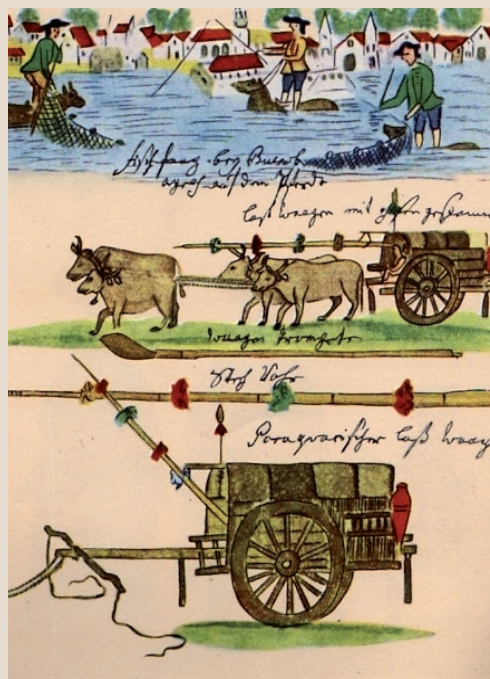 fischfang bey Buenos
ayres auf dem Pferde
last waagen mit ochsen
waagen trompete
Stech Rohr
Paraquarischer last waag